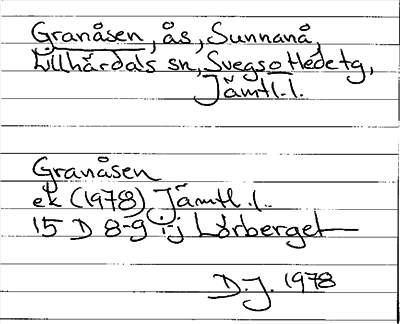 Granåsen, ås, Sunnanå,
Lillhärdals sn, Svegs o Hede tg,
Jämtl. l.
Granåsen
ek (1978) Jämtl. l.
15 D 8-9 i-j Lörberget
D.J. 1978